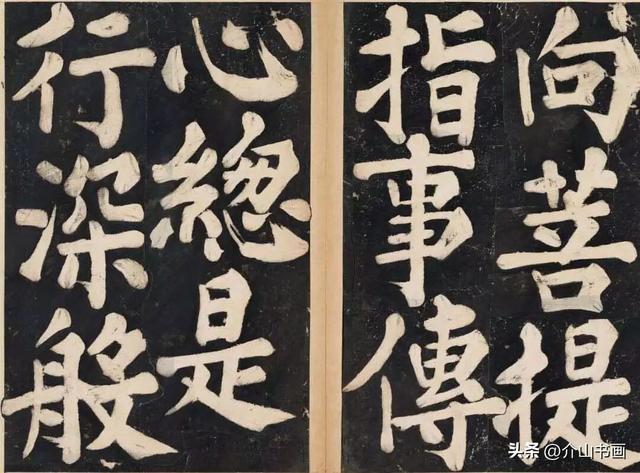 向菩提
指事傳
心總是
行深般
头条 @介山书画